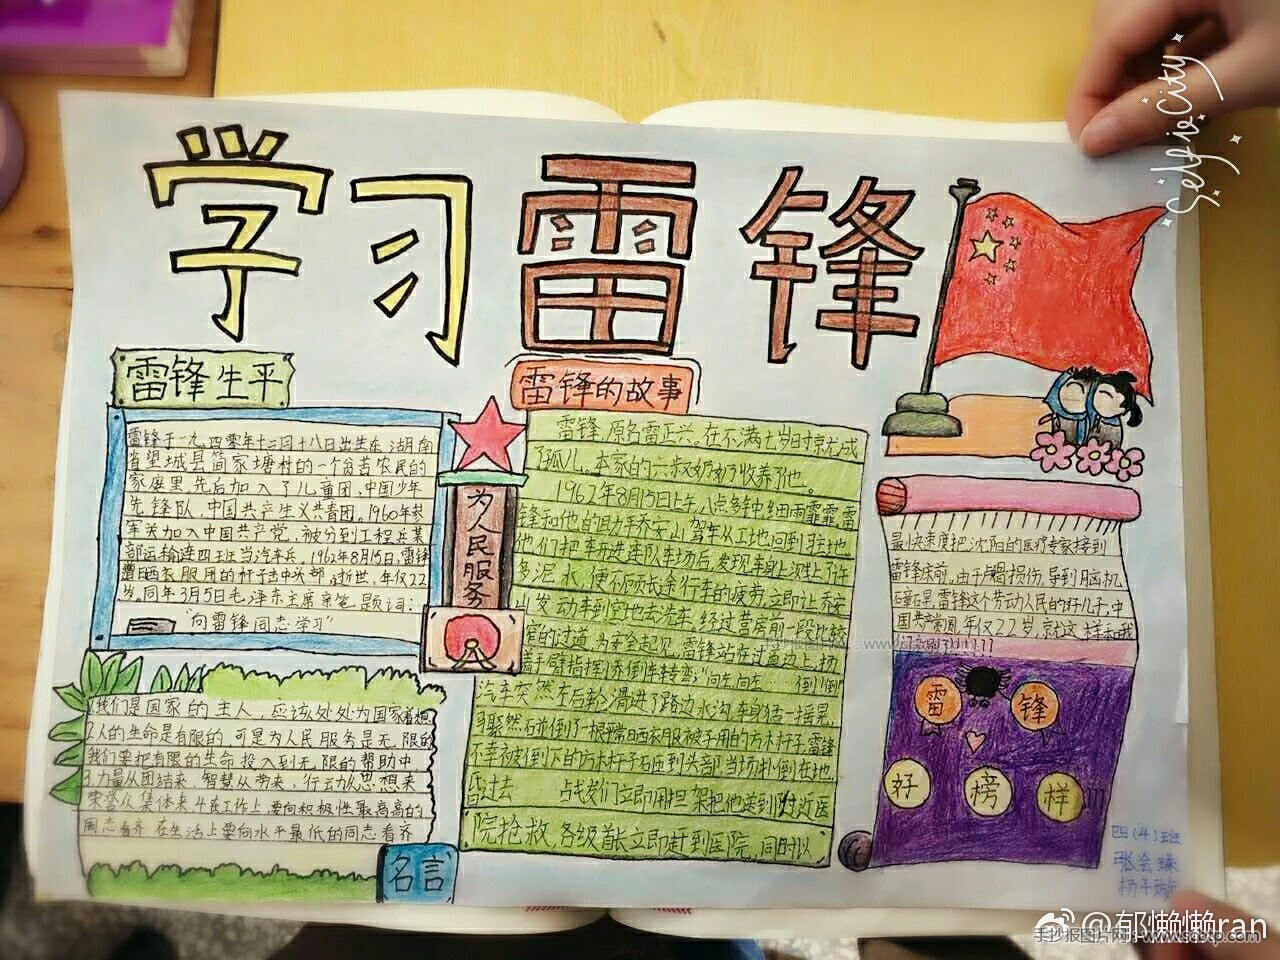 学习雷锋
SelfieCity
雷锋生平
雷锋于一九四零年十二月十八日出生在湖南
省望城县简家塘村的一个贫苦农民的
家庭里。先后加入了儿童团,中国少年
先锋队,中国共产主义共青团。1960年参
军关加入中国共产党,被分到工程兵某
部运输连四班当汽车兵。1962年8月15日,雷锋
晒衣服用的杆子击中头部,逝世,年仅22
岁,同年3月5日毛泽东主席亲笔题词:
“向雷锋同志学习”
为人民服务
雷锋的故事
雷锋,原名雷正兴。在不满七岁时就成
了孤儿。本家的六叔奶奶收养了他。
1962年8月15日上午,八点多钟,细雨霏霏,雷
锋和他的助手乔安山驾车从工地回到驻地
他们把车开进连队车场后,发现车身上溅上了许
多泥水,便不顾长途行车的疲劳,立即让乔安
山发动车到空地去洗车。经过营房前一段比较
窄的过道,为安全起见,雷锋站在过道边上,扬
着手臂指挥小乔倒车转弯:“向左,向左 倒!倒!
汽车突然左后轮滑进了路边水沟,车身猛一摇晃,
骤然碰倒了一根平常晒衣服被子用的方木杆子,雷锋
不幸被倒下的方木杆子砸到头部,当场扑倒在地,
昏过去 战友们立即用担架把他送到附近医
院抢救,各级首长立即赶到医院,同时以
最快速度把沈阳的医疗专家接到
雷锋床前,由于颅损伤,导到脑机
能碍,雷锋这个劳动人民的好儿子,中
国共 年仅22岁,就这样和我
雷锋
好榜样
我们是国家的主人,应该处处为国家着想
2.人的生命是有限的,可是为人民服务是无限的
我们要把有限的生命投入到无限的帮助中
3.力量从团结来,智慧从劳来,行动从思想来
荣誉从集体来 4.在工作上,要向积极性最高高的
同志看齐,在生活上要向水平最低的同志看齐
名言
四(4)班
张会臻
杨子
手抄报图片网:www.scbtp.com
@郁懒懒懒ran